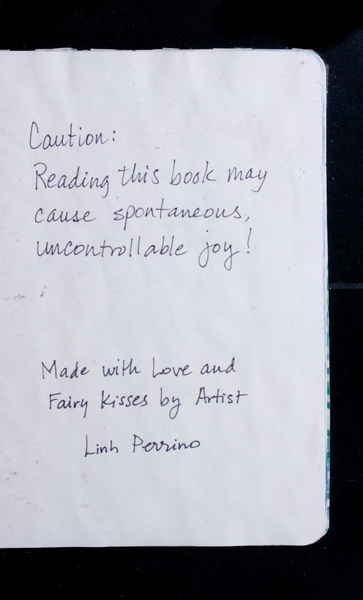 Caution:
Reading this book may
cause spontaneous,
uncontrollable joy!
Made with Love and
Fairy Kisses by Artist
Linh Perrino